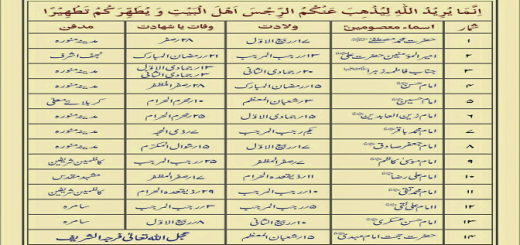 اِنَّمَا يُرِيْدُ اللّٰهُ لِيُذْهِبَ عَنْكُمُ الرِّجْسَ اَهْلَ الْبَيْتِ وَ يُطَهِّرَكُمْ تَطْهِيْرًا
شمار اسماء معصومینؑ ولادت وفات یا شہادت مدفن
۱ حضرت محمد مصطفےٰ ۱۷ ربیع الاوّل ۲۸ صفر مدینہ منورہ
۲ امیر المومنین حضرت علی ۱۳ رجب المرجب ۲۱ رمضان المبارک نجف اشرف
۳ جناب فاطمہ زہرا ۲۰ جمادی الثانی ۱۳ جمادی الاوّل ۳ جمادی الثانی مدینہ منورہ
۴ امام حسن ۱۵ رمضان المبارک ۲۸ صفر المظفر مدینہ منورہ
۵ امام حسین ۳ شعبان المعظم ۱۰ محرم الحرام کربلائے معلیٰ
۶ امام زین العابدین ۱۵ جمادی الاوّل ۲۵ محرم الحرام مدینہ منورہ
۷ امام محمد باقر یکم رجب المرجب ۷ ذی الحجہ مدینہ منورہ
۸ امام جعفر صادق ۱۷ ربیع الاوّل ۱۵ شوال المکرم مدینہ منورہ
۹ امام موسیٰ کاظم ۷ صفر المظفر ۲۵ رجب المرجب کاظمین شریفین
۱۰ امام علی رضا ۱۱ ذیقعدہ الحرام صفر المظفر مشہد مقدس
۱۱ امام محمد تقی ۱۰ رجب المرجب ۲۹ ذیقعدہ الحرام کاظمین شریفین
۱۲ امام علی نقی ۵ رجب المرجب ۳ رجب المرجب سامرہ
۱۳ امام حسن عسکری ۱۰ ربیع الثانی ۸ ربیع الاوّل سامرہ
۱۴ حضرت حجت امام مہدی ۱۵ شعبان المعظم عجل اللہ تعالیٰ فرجہ الشریف